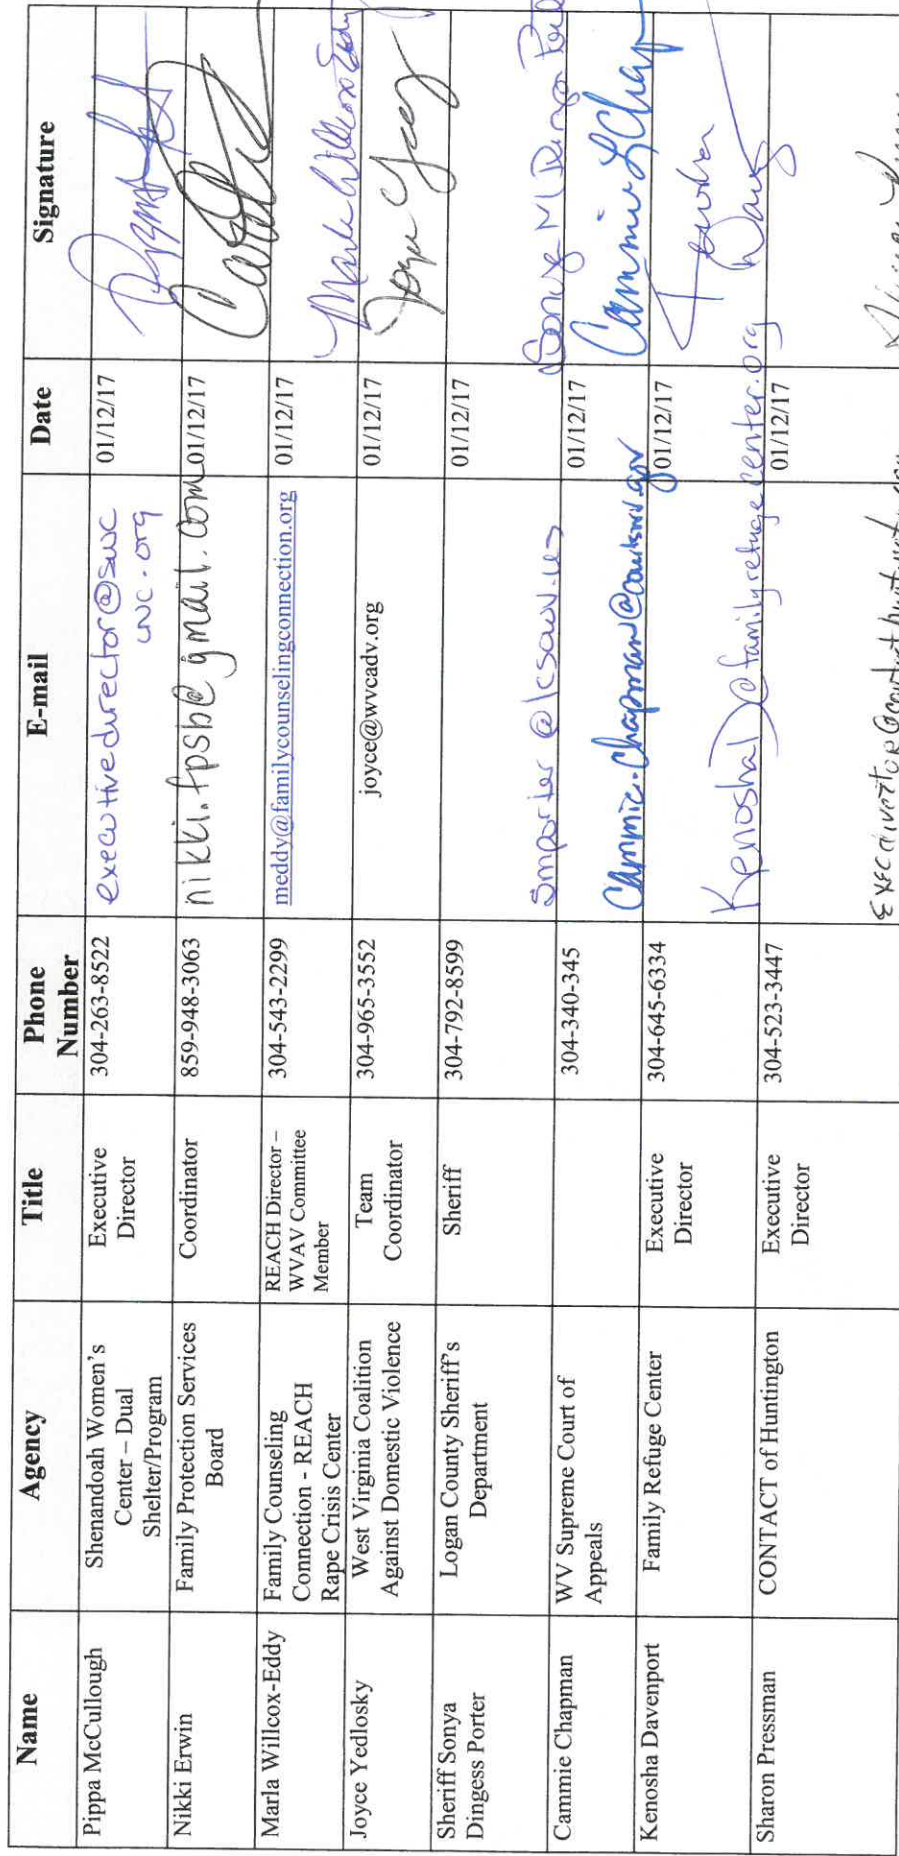 Name Agency Title Phone Number E-mail Date Signature
Pippa McCullough Shenandoah Women's Center – Dual Shelter/Program Executive Director 304-263-8522 executivedirector@swcwc.org 01/12/17
Nikki Erwin Family Protection Services Board Coordinator 859-948-3063 nikki.fpsb@gmail.com 01/12/17
Marla Willcox-Eddy Family Counseling Connection - REACH Rape Crisis Center REACH Director – WVAV Committee Member 304-543-2299 meddy@familycounselingconnection.org 01/12/17 Marla Willcox Eddy
Joyce Yedlosky West Virginia Coalition Against Domestic Violence Team Coordinator 304-965-3552 joyce@wvcadv.org 01/12/17
Sheriff Sonya Dingess Porter Logan County Sheriff's Department Sheriff 304-792-8599 01/12/17
Cammie Chapman WV Supreme Court of Appeals 304-340-345 01/12/17 Cammie L Chap
Kenosha Davenport Family Refuge Center Executive Director 304-645-6334 KenoshaD@familyrefugecenter.org 01/12/17
Sharon Pressman CONTACT of Huntington Executive Director 304-523-3447 01/12/17